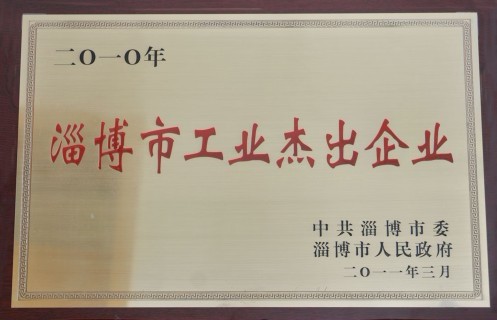 二〇一〇年
淄博市工业杰出企业
中共淄博市委
淄博市人民政府
二〇一一年三月